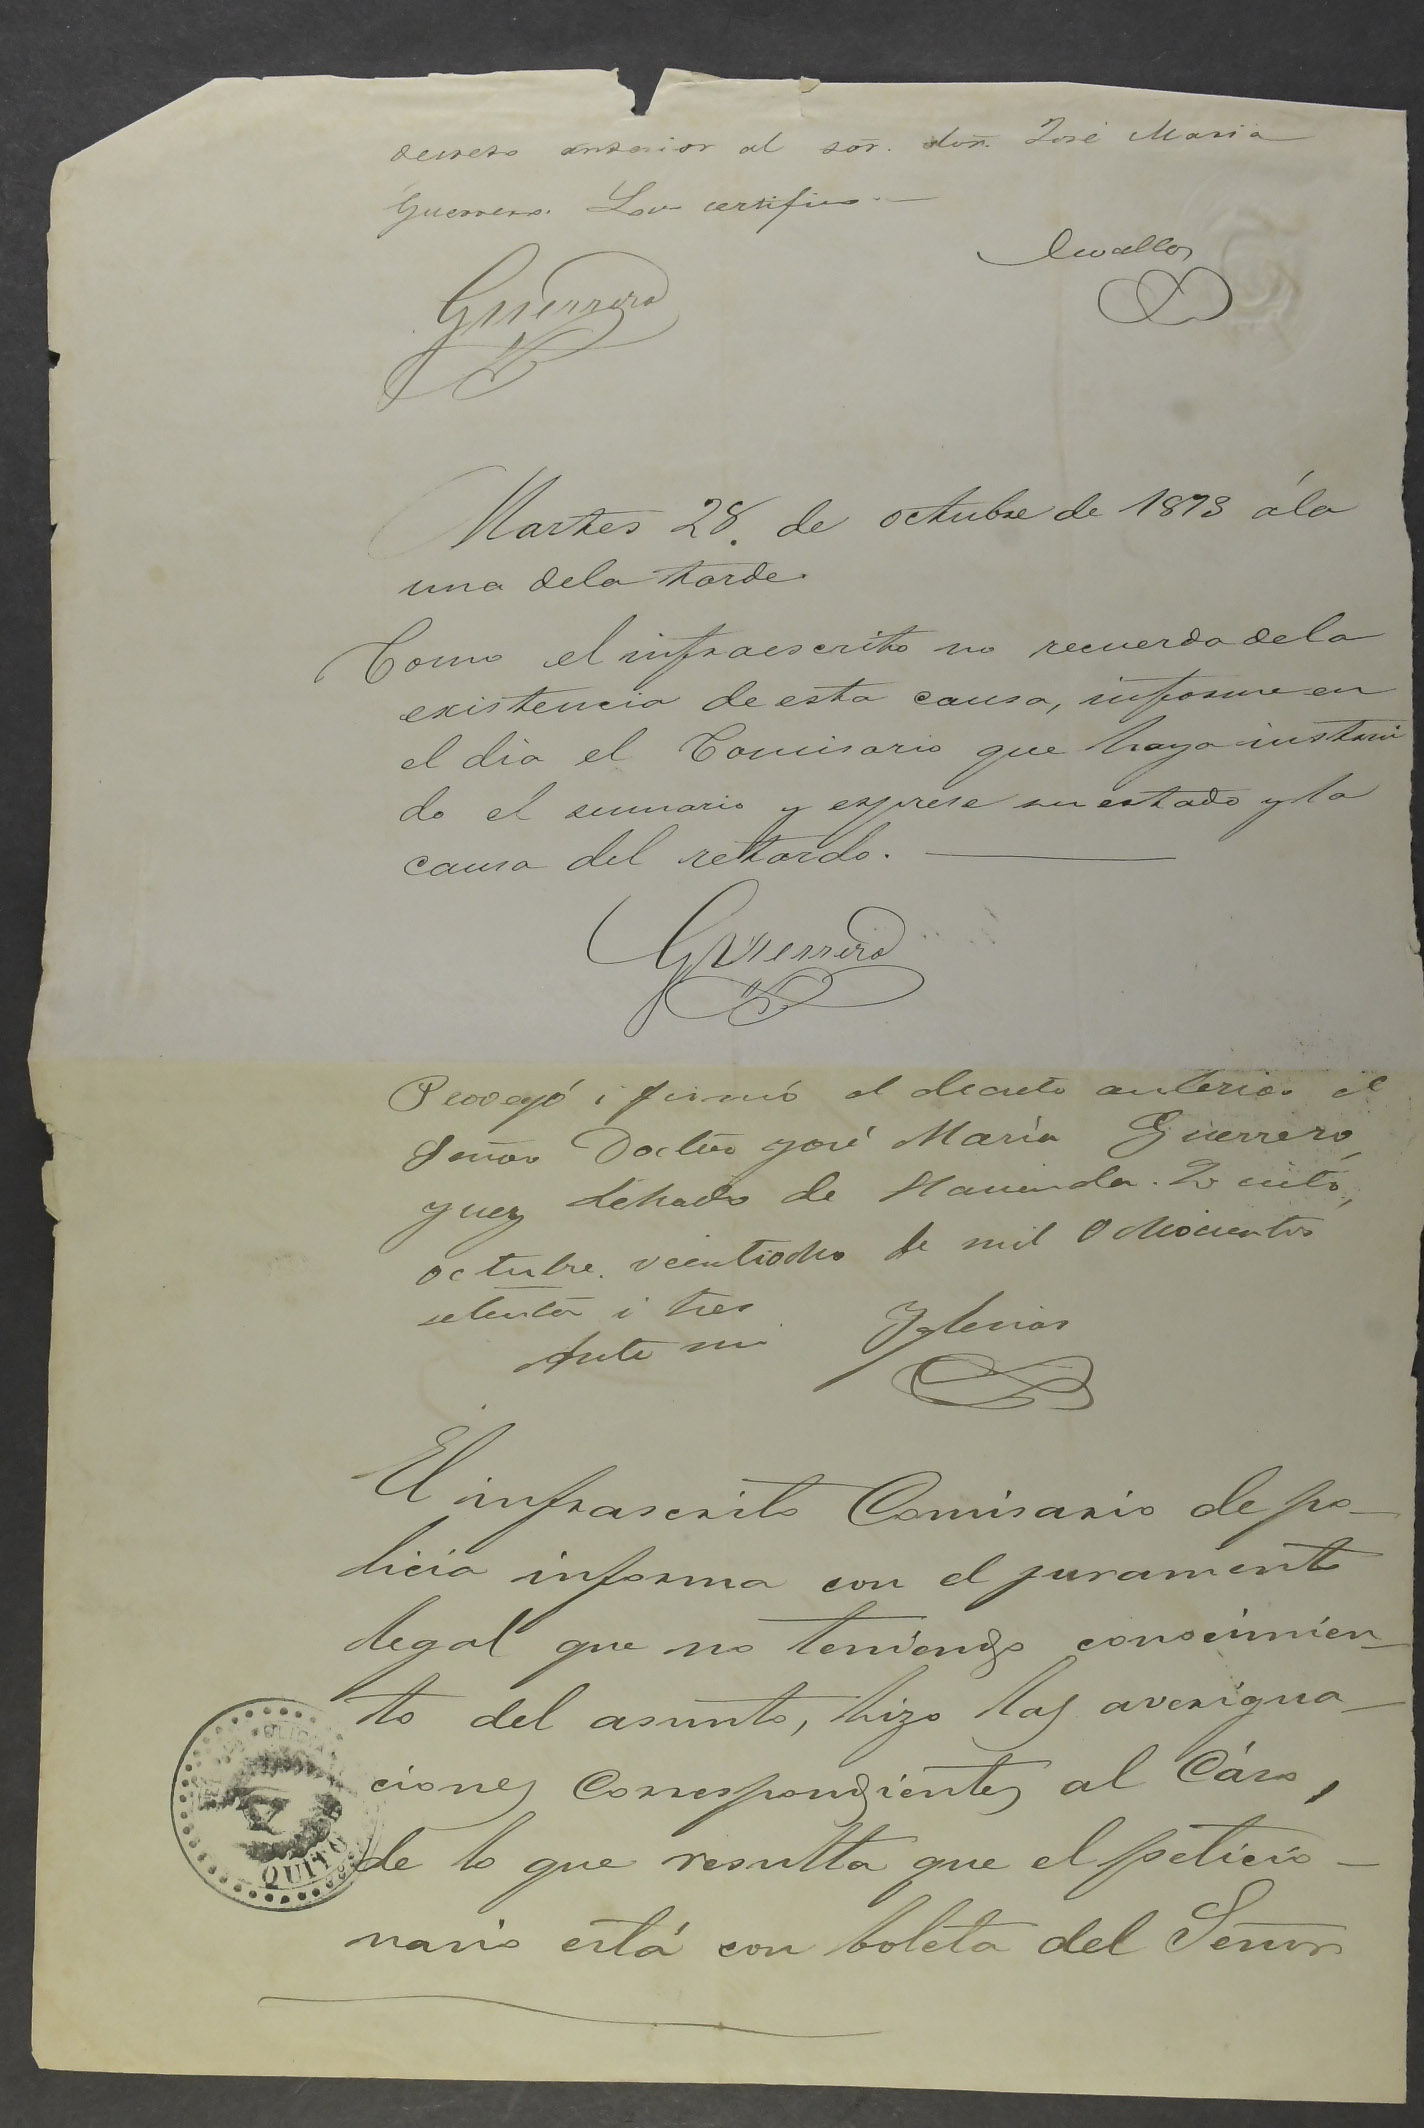 decreto anterior al sor. don. José Maria
Guerrero. Lo certifico.
Cevallos
Guerrero
Martes 28. de octubre de 1873 á la
una dela tarde.
Como el infraescrito no recuerda dela
existencia de esta causa, informe en
el dia el Comisario que haya instrui
do el sumario y esprese su estado y la
causa del retardo.
Guerrero
Proveyó i firmó el decreto anterior el
Señor Doctor José María Guerrero,
Juez letrado de Hacienda. Quito,
octubre veintiocho de mil ochocientos
setenta i tres
Ante mi Yglesias
El infrascrito Comisario de po-
licia informa con el juramento
legal que no teniendo conocimien-
to del asunto, hizo las averigua-
ciones correspondientes al cáso,
de lo que resulta que el peticio-
nario está con boleta del Señor
QUITO